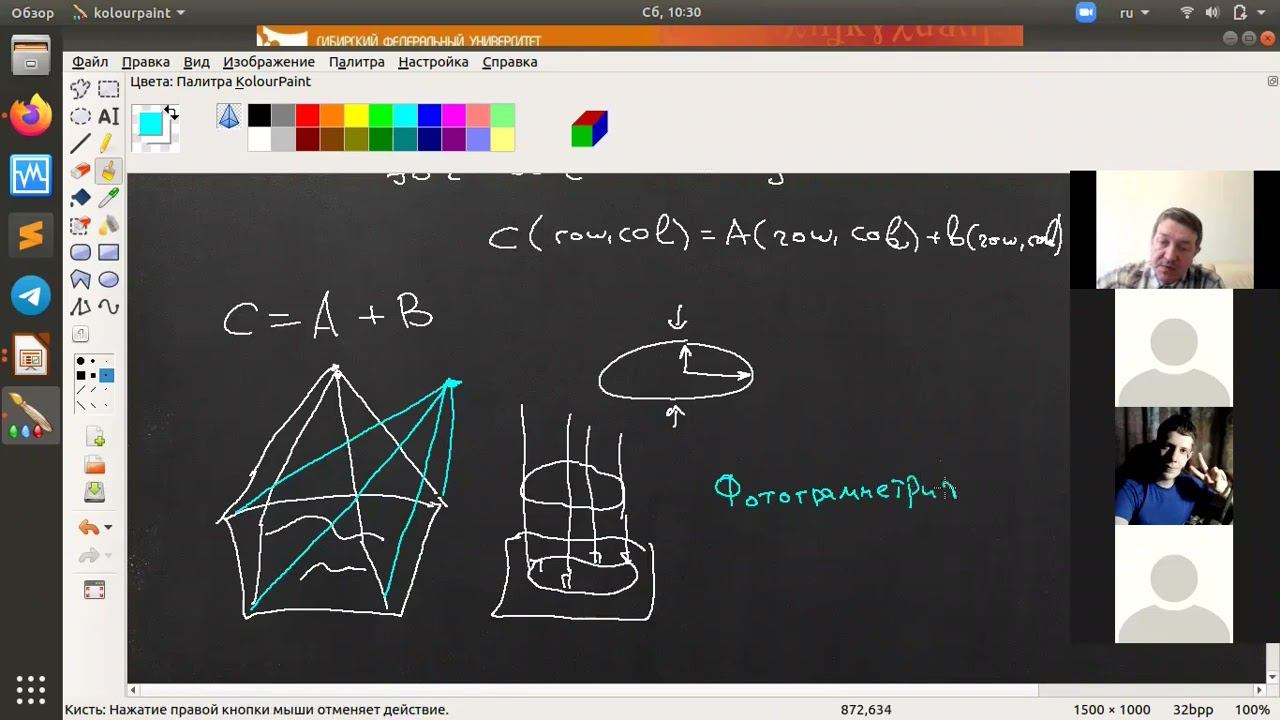 Обзор kolourpaint Сб, 10:30 ru
СИБИРСКИЙ ФЕДЕРАЛЬНЫЙ УНИВЕРСИТЕТ
Файл Правка Вид Изображение Палитра Настройка Справка
Цвета: Палитра KolourPaint
C(row,col)=A(row,col)+B(row,col)
C=A+B
Фотограмметрия
Кисть: Нажатие правой кнопки мыши отменяет действие. 872,634 1500 × 1000 32bpp 100%